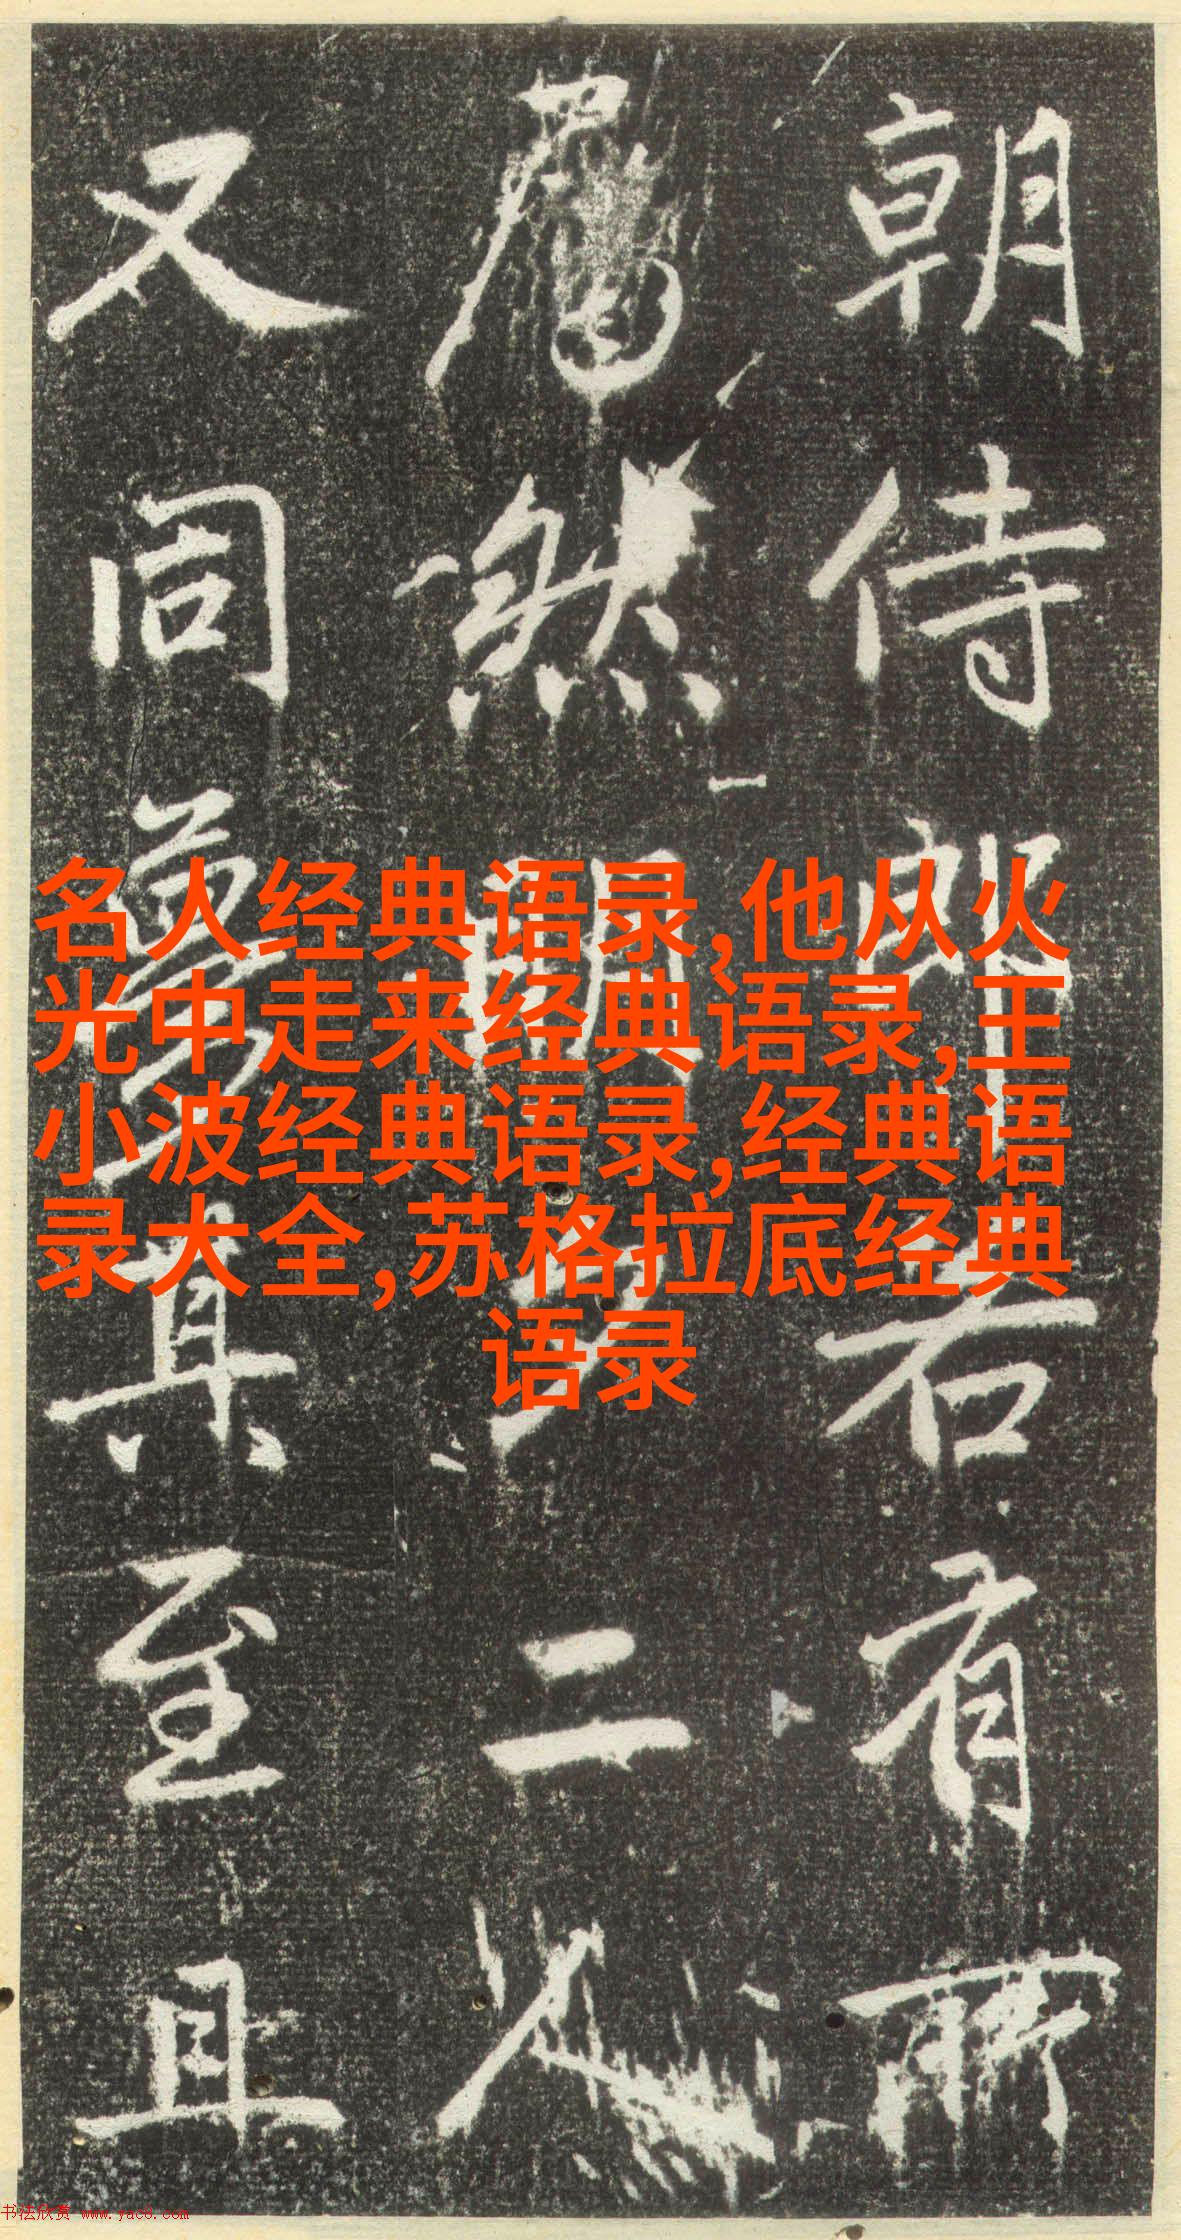 朝侍郎右有所
然明二人
又同真至且
名人经典语录,他从火
光中走来经典语录,王
小波经典语录,经典语
录大全,苏格拉底经典
语录
书法欣赏 www.yac8.com